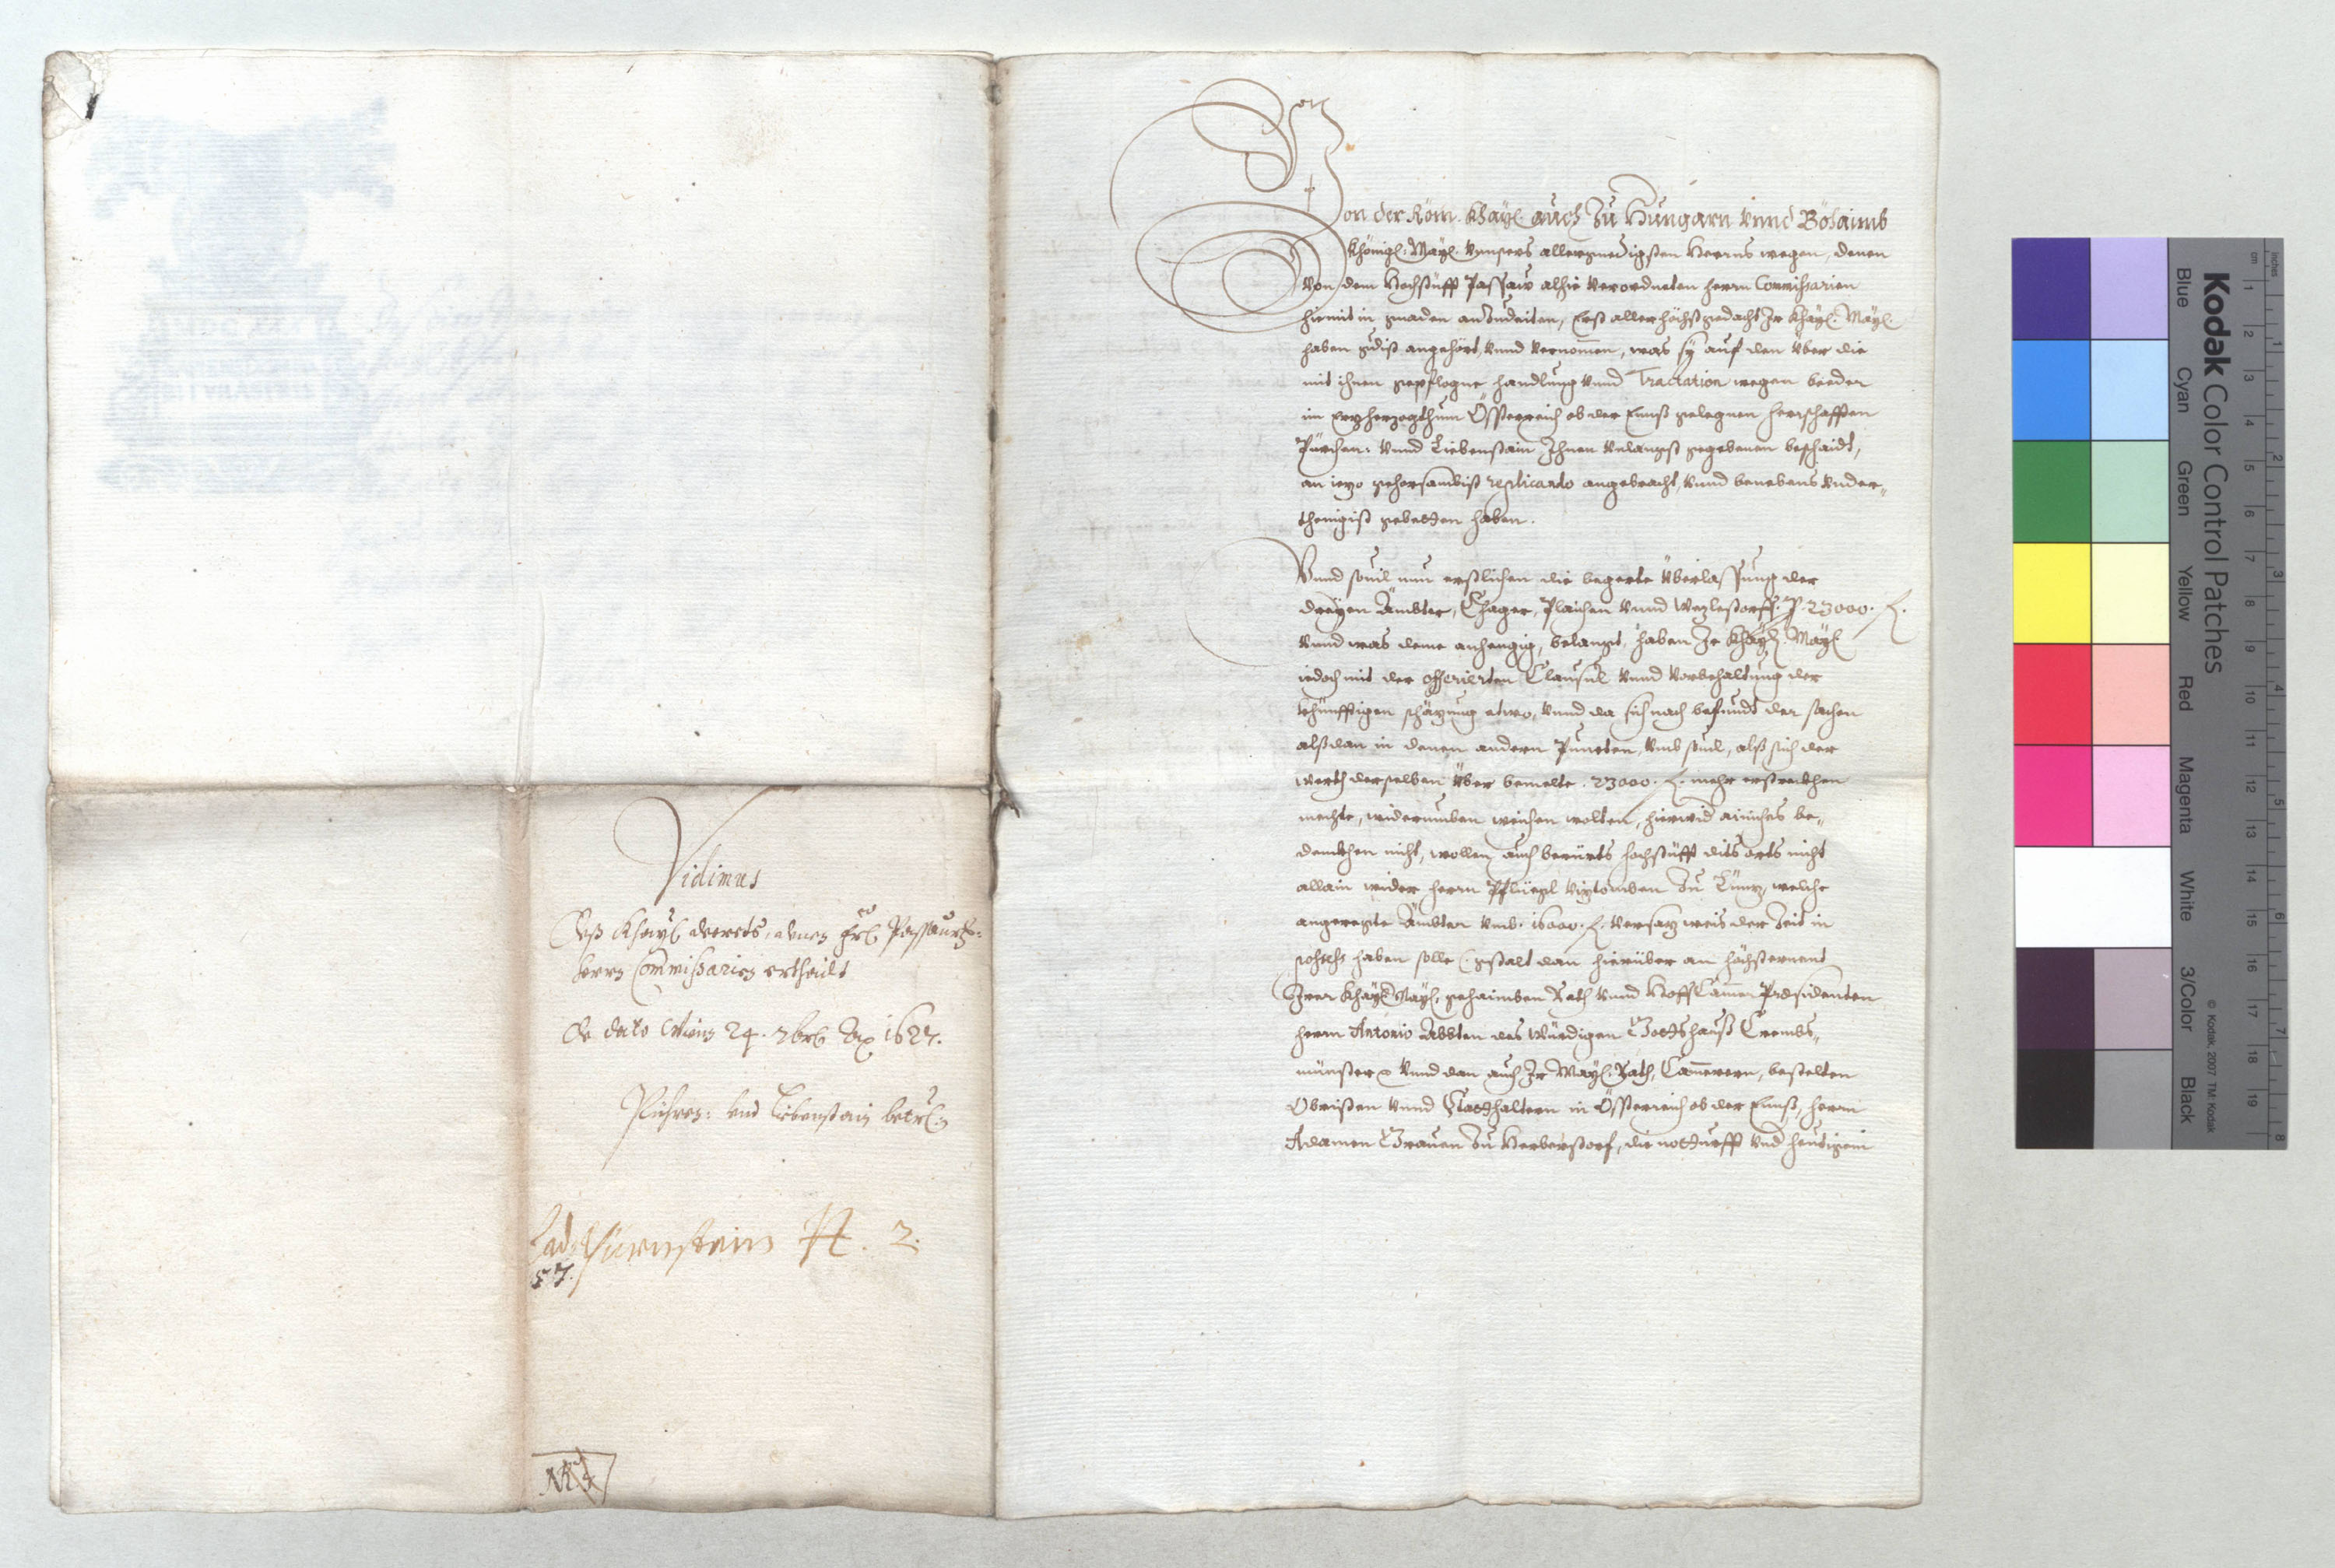 Vidimus
Deß Khayl. decrets, denen Hrl. Passaurl:
herrn Commissarien ertheilt
De dato Wien 24. 9bris Ao 1627.
Pührn: und Liebenstain betrl:
Lad. Pürnstein N. 2.
57.
N 5
Von der Röm. Khayl. auch zu Hungarn unnd Böhaimb
Khönigl: Mayl. unnsers allergnedigsten Herrns wegen, denen
von dem Hochstüfft Passaw alhie verordneten herrn Commissarien
hiemit in gnaden anzudeiten, Erst allerhöchstgedacht Ir Khayl: Mayl.
haben gdist angehört, unnd vernomen, was sy auf den über die
mit ihnen gepflogne handlung unnd Tractation wegen beeder
im Erzherzogthum Össterreich ob der Ennß gelegnen herrschafften
Pürchen: unnd Liebenstain Ihnen unlangst gegebenen beschaidt,
an iezo gehorsambist replicando angebracht, unnd benebens under„
thenigist gebetten haben.
Unnd sovil nun erstlichen die begerte überlassung der
dreyen Ämbter, Hager, Plaichen unnd Wezlestorff. P. 23000. fl.
unnd was deme anhengig, belangt, haben Ir Khayl: Mayl
iedoch mit der offerierten Clausul unnd vorbehaltung der
khünfftigen schäzung etwo, unnd da sich nach befundt der sachen
alßdan in denen andern Puncten, umb sovil, alß sich der
werth derselben über bemelte. 23000. fl. mehr erstreckhen
mechte, widerumben weichen wolten, hierwid ainiches be„
denckhen nicht, wollen auch berürts hochstüfft dits orts nicht
allain wider herrn Pflüegl Viztomben zu Lünz, welche
angeregte Ämbter umb. 16000. fl. versaz weis der Zeit in
haben solle (gestalt dan hierüber an höchsternent
Irer Khayl Mayl. gehaimben Rath unnd Hoff Camer Præsidenten
herrn Antonio Abbten des würdigen Gottshauß Crembs„
münster unnd dan auch Ir Mayl. Rath, Cammerern, bestelten
Obristen unnd Statthaltern in Össterreich ob der Ennß, herrn
Adamen Graven zu Herberstorf, die notturfft und heutigem